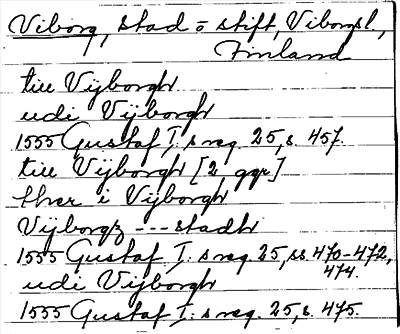 Viborg, stad o stift, Viborgsl.,
Finland
till Vijborgh
udi Vijborgh
1555 Gustaf I:s reg. 25, s. 457.
till Vijborgh [2 ggr]
ther i Vijborgh
Vijborgz --- stadh
1555 Gustaf I:s reg. 25, ss. 470-472,
474.
udi Vijborgh
1555 Gustaf I:s reg. 25, s. 475.